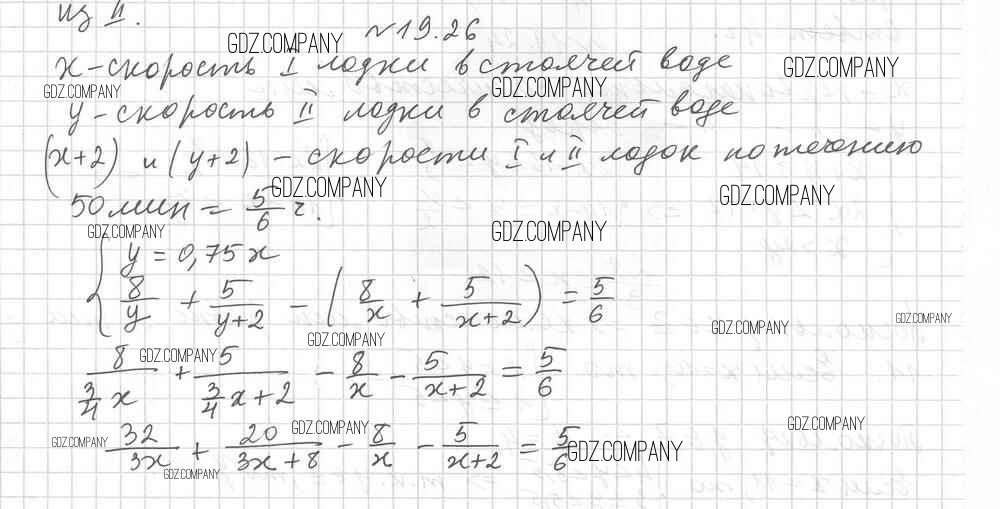 из II.
N19.26
GDZ.COMPANY
x - скорость I лодки в стоячей воде
GDZ.COMPANY
GDZ.COMPANY GDZ.COMPANY
y - скорость II лодки в стоячей воде
(x+2) и (y+2) - скорости I и II лодок по течению
GDZ.COMPANY GDZ.COMPANY
50 мин = 5/6 ч.
GDZ.COMPANY GDZ.COMPANY
{ y = 0,75x
8/y + 5/(y+2) - (8/x + 5/(x+2)) = 5/6
GDZ.COMPANY GDZ.COMPANY GDZ.COMPANY
GDZ.COMPANY
8/(3/4 x) + 5/(3/4 x+2) - 8/x - 5/(x+2) = 5/6
GDZ.COMPANY GDZ.COMPANY
32/3x + 20/(3x+8) - 8/x - 5/(x+2) = 5/6
GDZ.COMPANY GDZ.COMPANY
GDZ.COMPANY